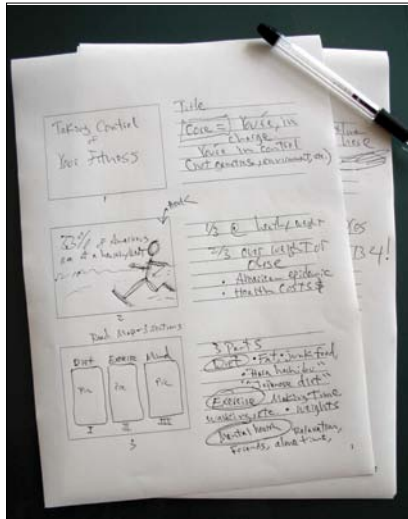 Title
Taking Control
of
Your Fitness
1
Core = You're in
charge
You're in control
(not genetics, environment, etc.)
are at a healthy weight
2
1/3 @ healthy weight
2/3 over weight or
obese
• American epidemic
• Health costs $
Road Map - 3 sections
Diet Exercise Mind
Pic Pic Pic
I II III
3
3 Parts
Diet • Fat • Junk food,
• "Hara hachibu"
• "Japanese diet"
Exercise • Making time
walking, etc. • weights
Mental health • Relaxation,
friends, alone time,